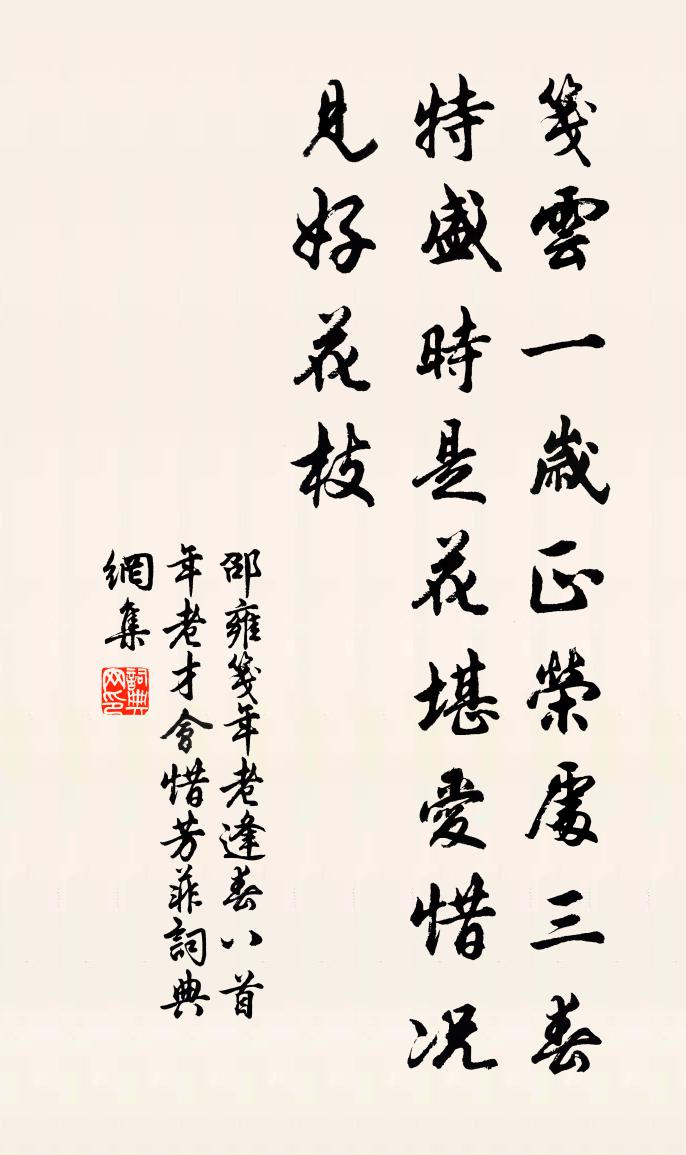 箋雲一歲正榮處三春
特盛時是花堪愛惜况
見好花枝
邵雍箋年老逢春八首
年老才會惜芳菲詞典
網集
詞典網印